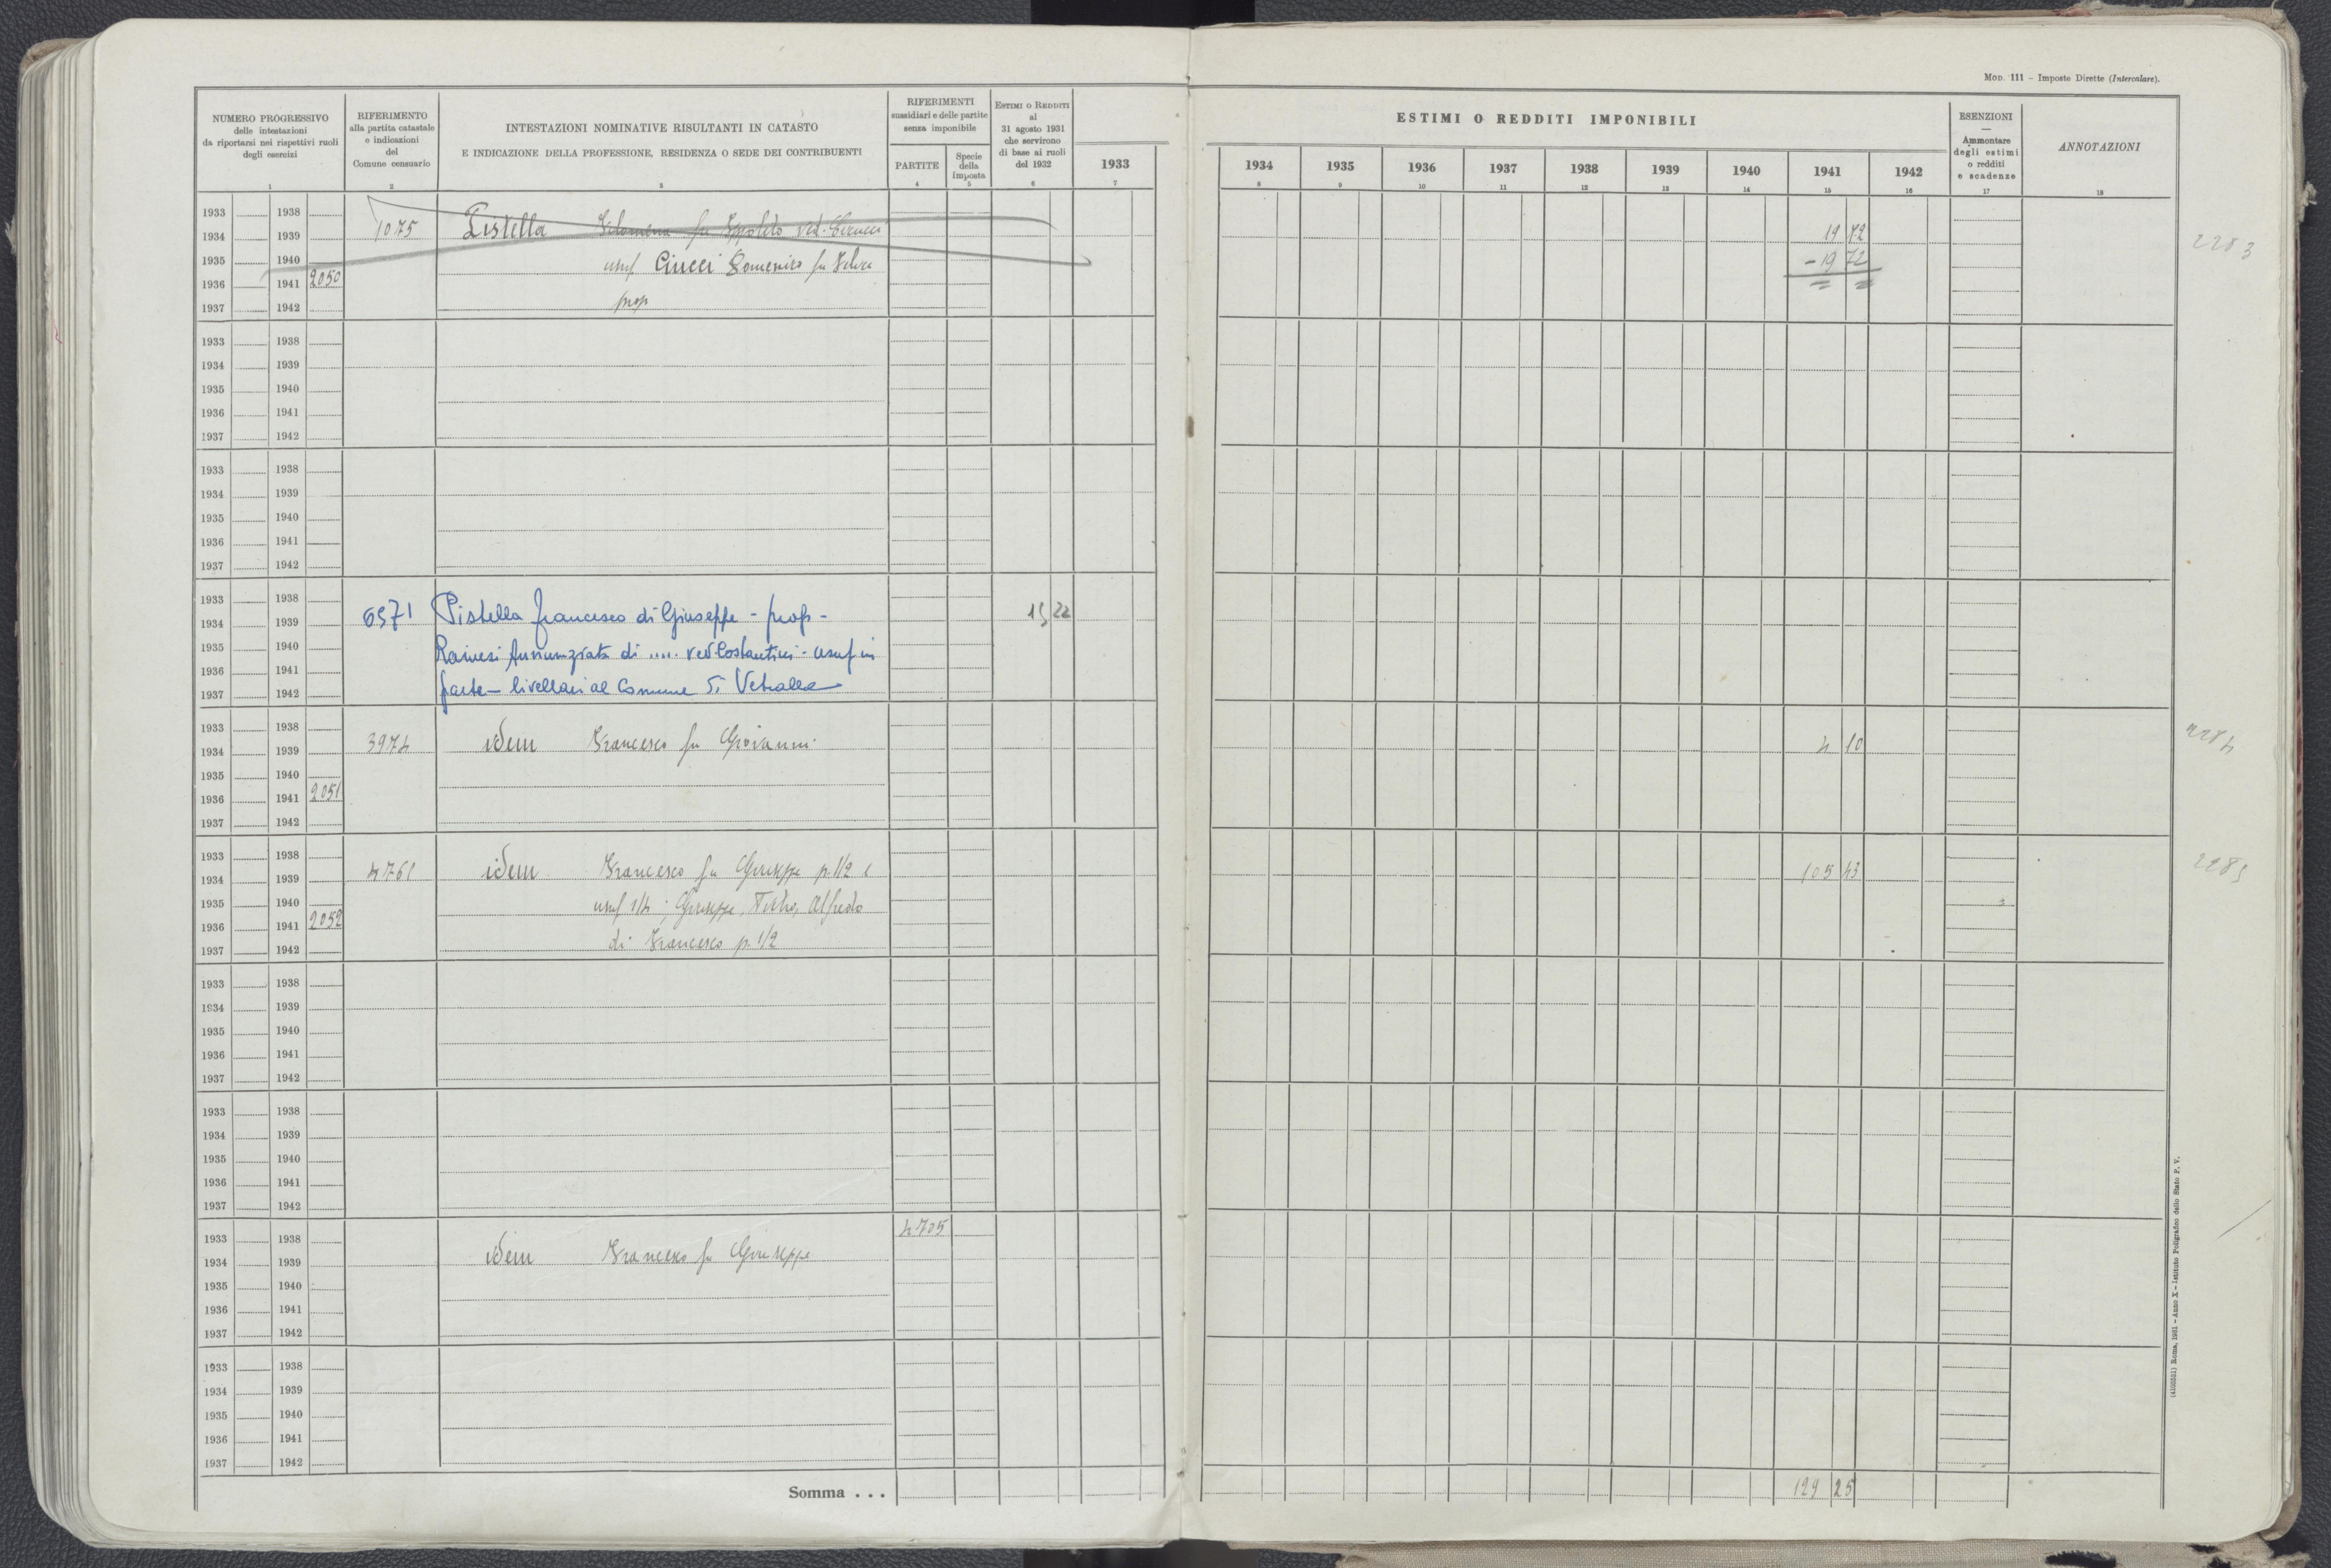 MOD. 111 – Imposte Dirette (Intercalare).
NUMERO PROGRESSIVO
delle intestazioni
da riportarsi nei rispettivi ruoli
degli esercizi
1
RIFERIMENTO
alla partita catastale
e indicazioni
del
Comune censuario
2
INTESTAZIONI NOMINATIVE RISULTANTI IN CATASTO
E INDICAZIONE DELLA PROFESSIONE, RESIDENZA O SEDE DEI CONTRIBUENTI
3
RIFERIMENTI
sussidiari e delle partite
senza imponibile
PARTITE
4
Specie
della
imposta
5
ESTIMI O REDDITI
al
31 agosto 1931
che servirono
di base ai ruoli
del 1932
6
1933
7
ESTIMI O REDDITI IMPONIBILI
1934 1935 1936 1937 1938 1939 1940 1941 1942
8 9 10 11 12 13 14 15 16
ESENZIONI
—
Ammontare
degli estimi
o redditi
e scadenze
17
ANNOTAZIONI
18
1933 1938
1934 1939 1075 Pistella Filomena fu Ippolito ved. 19 72 2283
1935 1940 usuf Ciucci Domenico fu Felice – 19 72
1936 1941 2050
1937 1942 prop
1933 1938
1934 1939
1935 1940
1936 1941
1937 1942
1933 1938
1934 1939
1935 1940
1936 1941
1937 1942
1933 1938
1934 1939 6571 Pistella Francesco di Giuseppe - prop - 15 22
1935 1940 Annunziata di ..... ved Costantini - usuf in
1936 1941
1937 1942 parte – livellari al Comune di Vetralla
1933 1938
1934 1939 3974 idem Francesco fu Giovanni 4 10 2284
1935 1940
1936 1941 2051
1937 1942
1933 1938
1934 1939 4761 idem Francesco fu Giuseppe p. 1/2 e 105 43 2285
1935 1940 usuf 1/4 ; Giuseppe, Alfredo
1936 1941 2052
1937 1942 di Francesco p. 1/2
1933 1938
1934 1939
1935 1940
1936 1941
1937 1942
1933 1938
1934 1939
1935 1940
1936 1941
1937 1942
1933 1938 4705
1934 1939 idem Francesco fu Giuseppe
1935 1940
1936 1941
1937 1942
1933 1938
1934 1939
1935 1940
1936 1941
1937 1942
Somma . . . 129 25
Roma, 1931 – Anno X – Istituto Poligrafico dello Stato P. V.